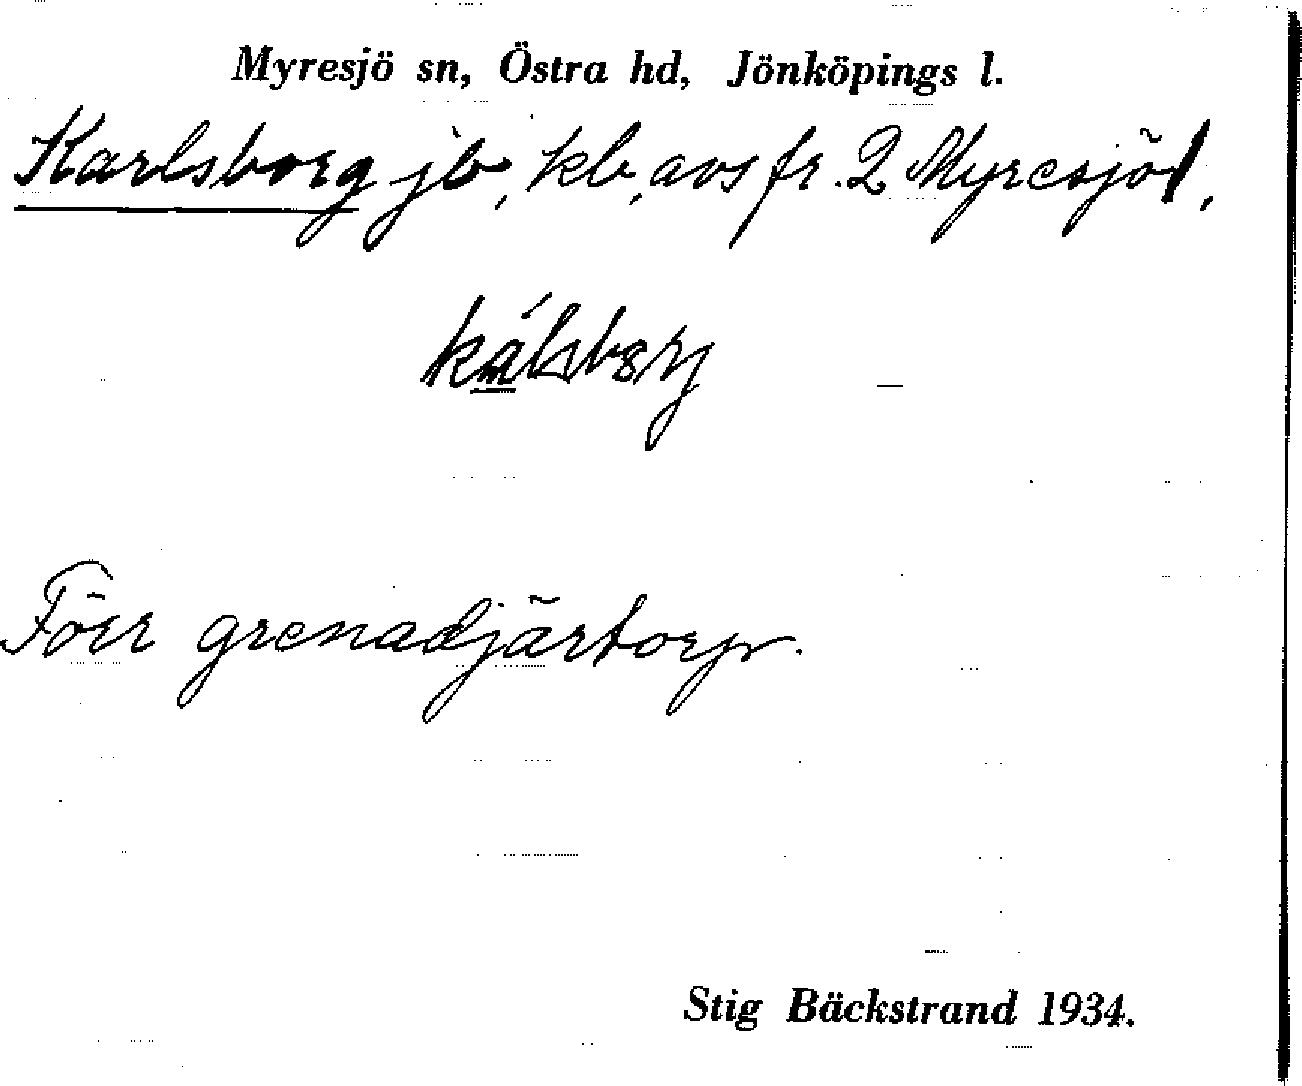 Myresjö sn, Östra hd, Jönköpings l.
Karlsborg jb, kb, avs fr. 2 Myresjö 1,
Förr grenadjärtorp.
Stig Bäckstrand 1934.